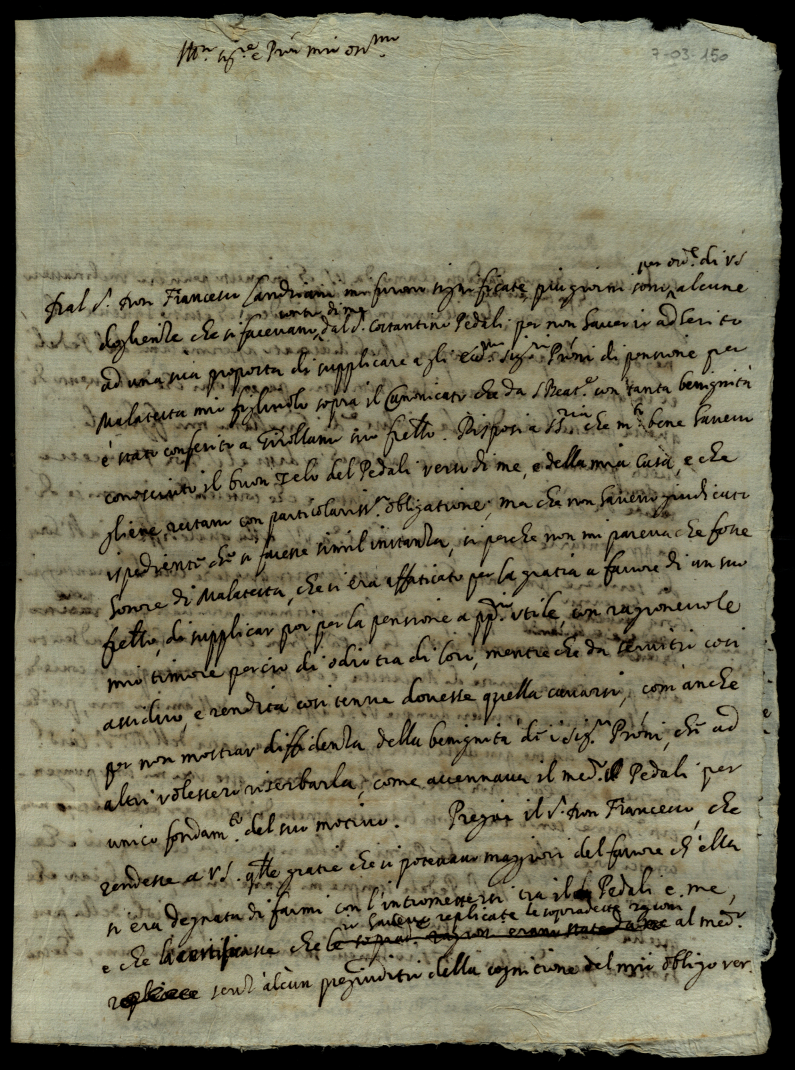 7-03-150
Ill.mo Sig.re e P.rōn mio oss.mo
per ord.e di VS
Dal S. Don Francesco Landriani mi furon significate più giorni sono alcune
verso di me
doglienze che si facevano dal S. Costantino Pedali per non haver io adherito
ad una sua proposta di supplicare a gli em.mi Sig.ri P.rōni di pensione per
Malatesta mio figliuolo sopra il Canonicato che da S Beat.e con tanta benignità
è stato conferito a suo frello. Risposi a che m.to bene havevo
conosciuto il buon zelo del Pedali verso di me, e della mia Casa, e che
gliene restavo con particolariss.a obligatione, ma che non havevo giudicato
ispediente che si facesse simil instanza, sì perche non mi pareva che fosse
honore di Malatesta, che si era affaticato per la gratia a favore di un suo
frello, di supplicar poi per la pensione a pp.rio utile, con ragionevole
mio timore perciò di odio tra di loro, mentre che da servitii così
assidui, e rendita così tenue dovesse quella cavarsi, com'anche
per non mostrar diffidenza della benignità de i Sig.ri P.rōni, che ad
altri volessero riserbarla, come accennava il med.o Pedali per
unico fondam.to del suo motivo. Pregai il S. Don Francesco, che
rendesse a VS. q.lle gratie che si potevano maggiori del favore ch'ella
si era degnata di farmi con l'intromettersi tra il Pedali e me,
io havere replicate le sopradette ragioni
e che certificasse che le soprad. ragioni erano state da me al med.o
senz'alcun pregiuditio della cognitione del mio obligo ver